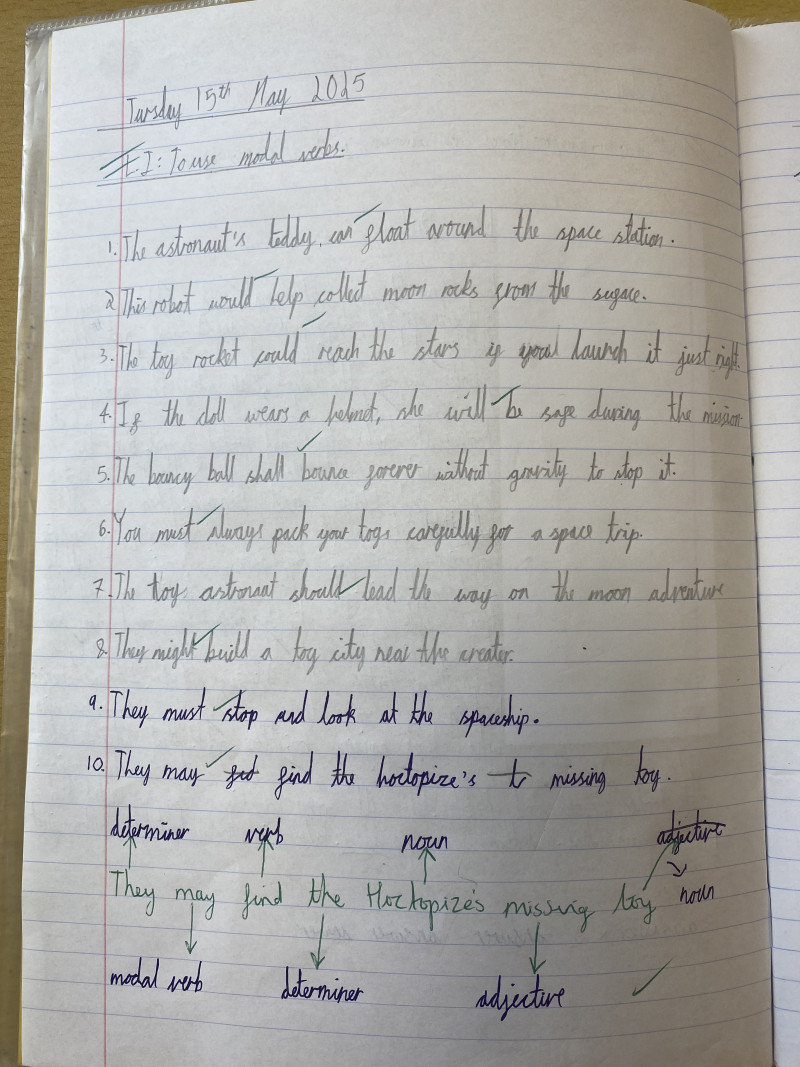 Tuesday 15th May 2025
L.I: To use modal verbs.
1. The astronaut's teddy can float around the space station.
2. This robot would help collect moon rocks from the surface.
3. The toy rocket could reach the stars if you launch it just right.
4. If the doll wears a helmet, she will be safe during the mission.
5. The bouncy ball shall bounce forever without gravity to stop it.
6. You must always pack your toys carefully for a space trip.
7. The toy astronaut should lead the way on the moon adventure
8. They might build a toy city near the creater.
9. They must stop and look at the spaceship.
10. They may find the hoctopize's missing toy.
determiner verb noun adjective
They may find the Hoctopize's missing toy noun
modal verb determiner adjective